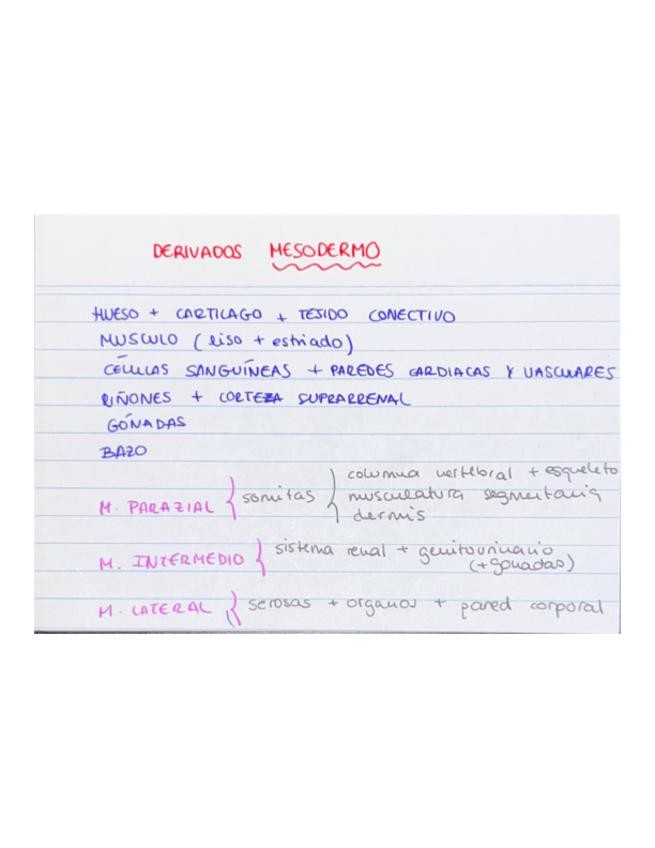 DERIVADOS MESODERMO
HUESO + CARTILAGO + TEJIDO CONECTIVO
MUSCULO (liso + estriado)
CÉLULAS SANGUÍNEAS + PAREDES CARDIACAS Y VASCULARES
RIÑONES + CORTEZA SUPRARRENAL
GÓNADAS
BAZO
columna vertebral + esqueleto
M. PARAZIAL { somitas } musculatura segmentaria
dermis
M. INTERMEDIO { sistema renal + genitourinario
(+gonadas)
M. LATERAL { serosas + organos + pared corporal